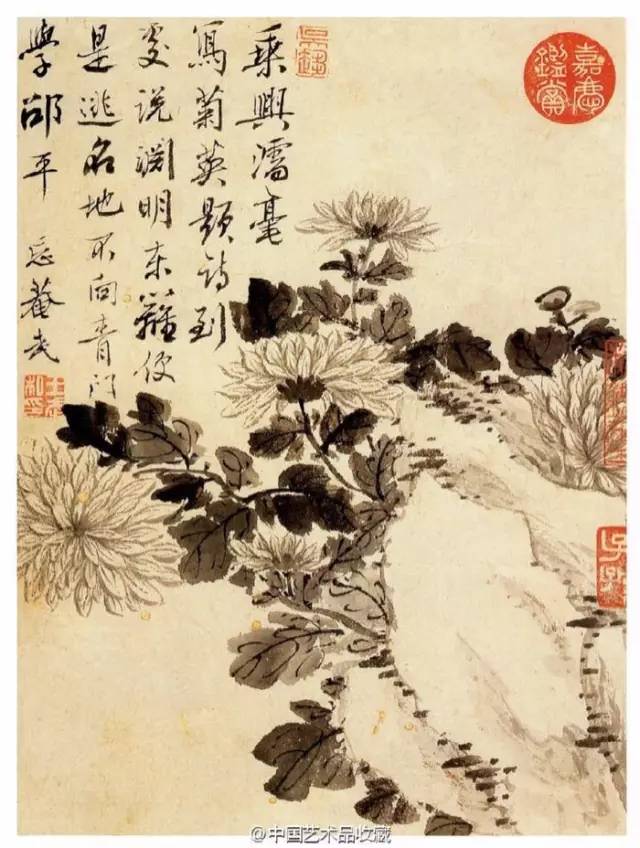 嘉慶鑑賞
乘興濡毫
寫菊英題詩到
處說淵明東籬便
是逃名地不向青門
學邵平 忘菴武
王武私印
@中国艺术品收藏